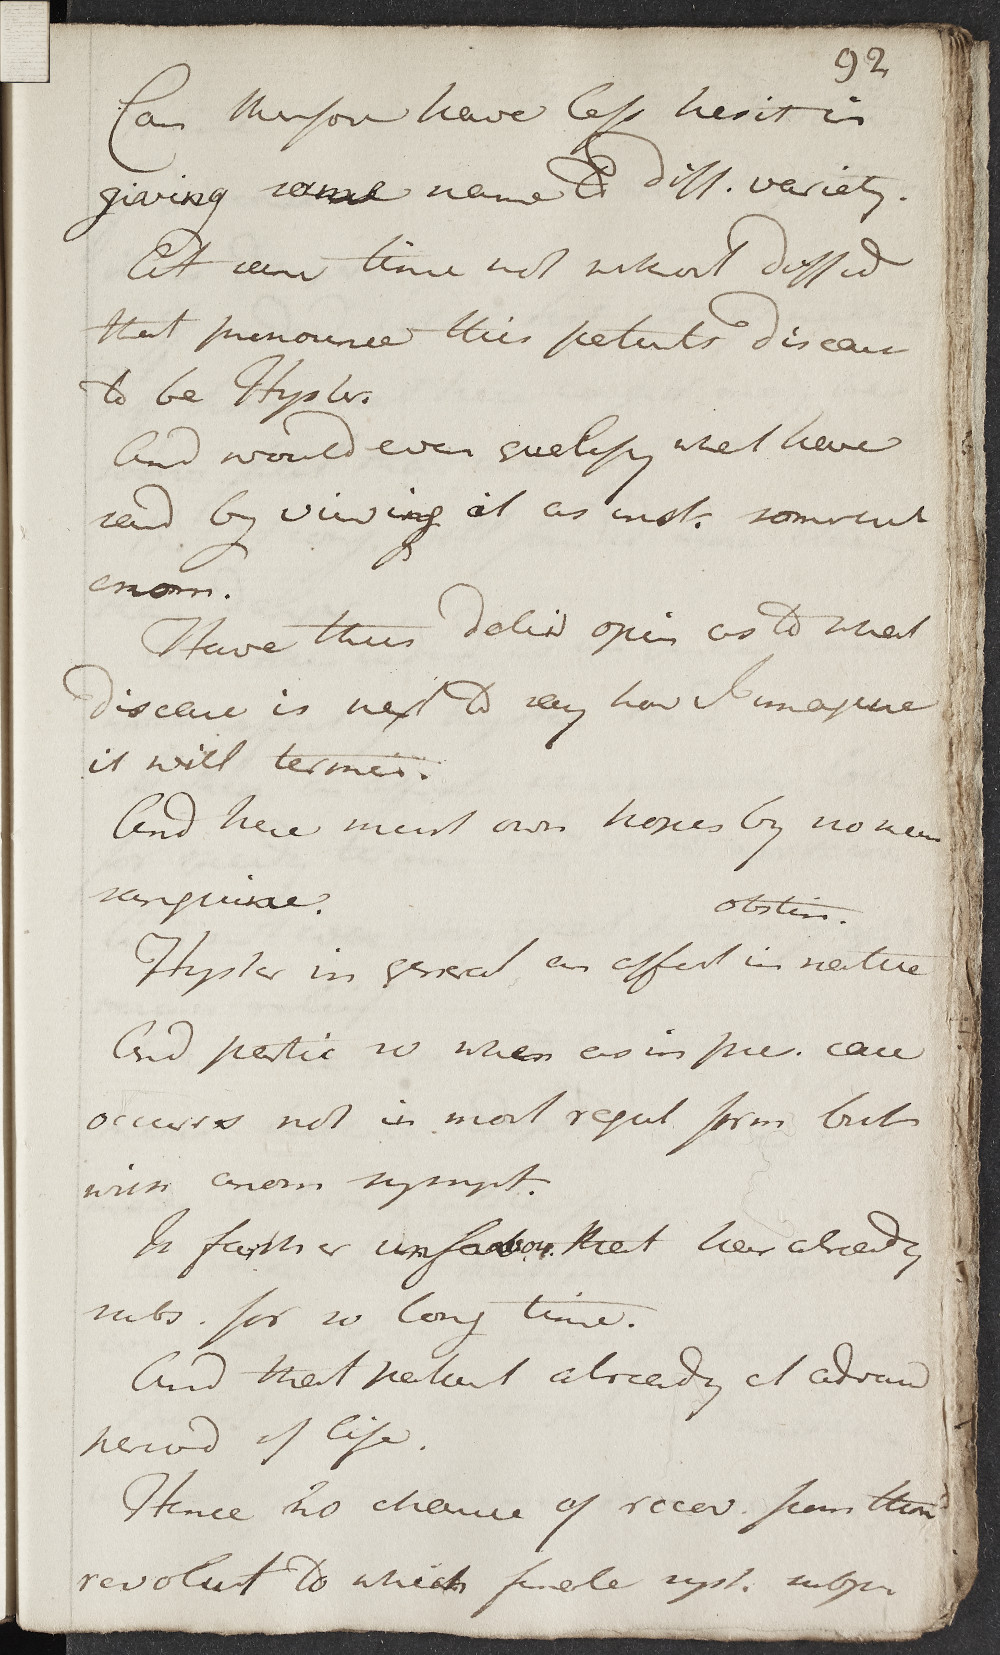 92
Can therefore have less hesit in
giving same name to diff. variety.
At same time not without diffid
that pronounce this patients disease
to be Hyster.
And would even qualify what have
said by viewing it as inst. somewhat
anom.
Have thus deliv opin as to what
disease is next to say how I imagine
it will termin.
And here must own hopes by no mean
sanguine.
obstin.
Hyster in general an affect in nature
And partic so when as in pre. case
occurrs not in most regul form but
with anom sympt.
Is farther unfavour. that has already
subs. for so long time.
And that patient already at advanc
period of life.
Hence no chance of recov. from those
revolut to which female syst. subjec